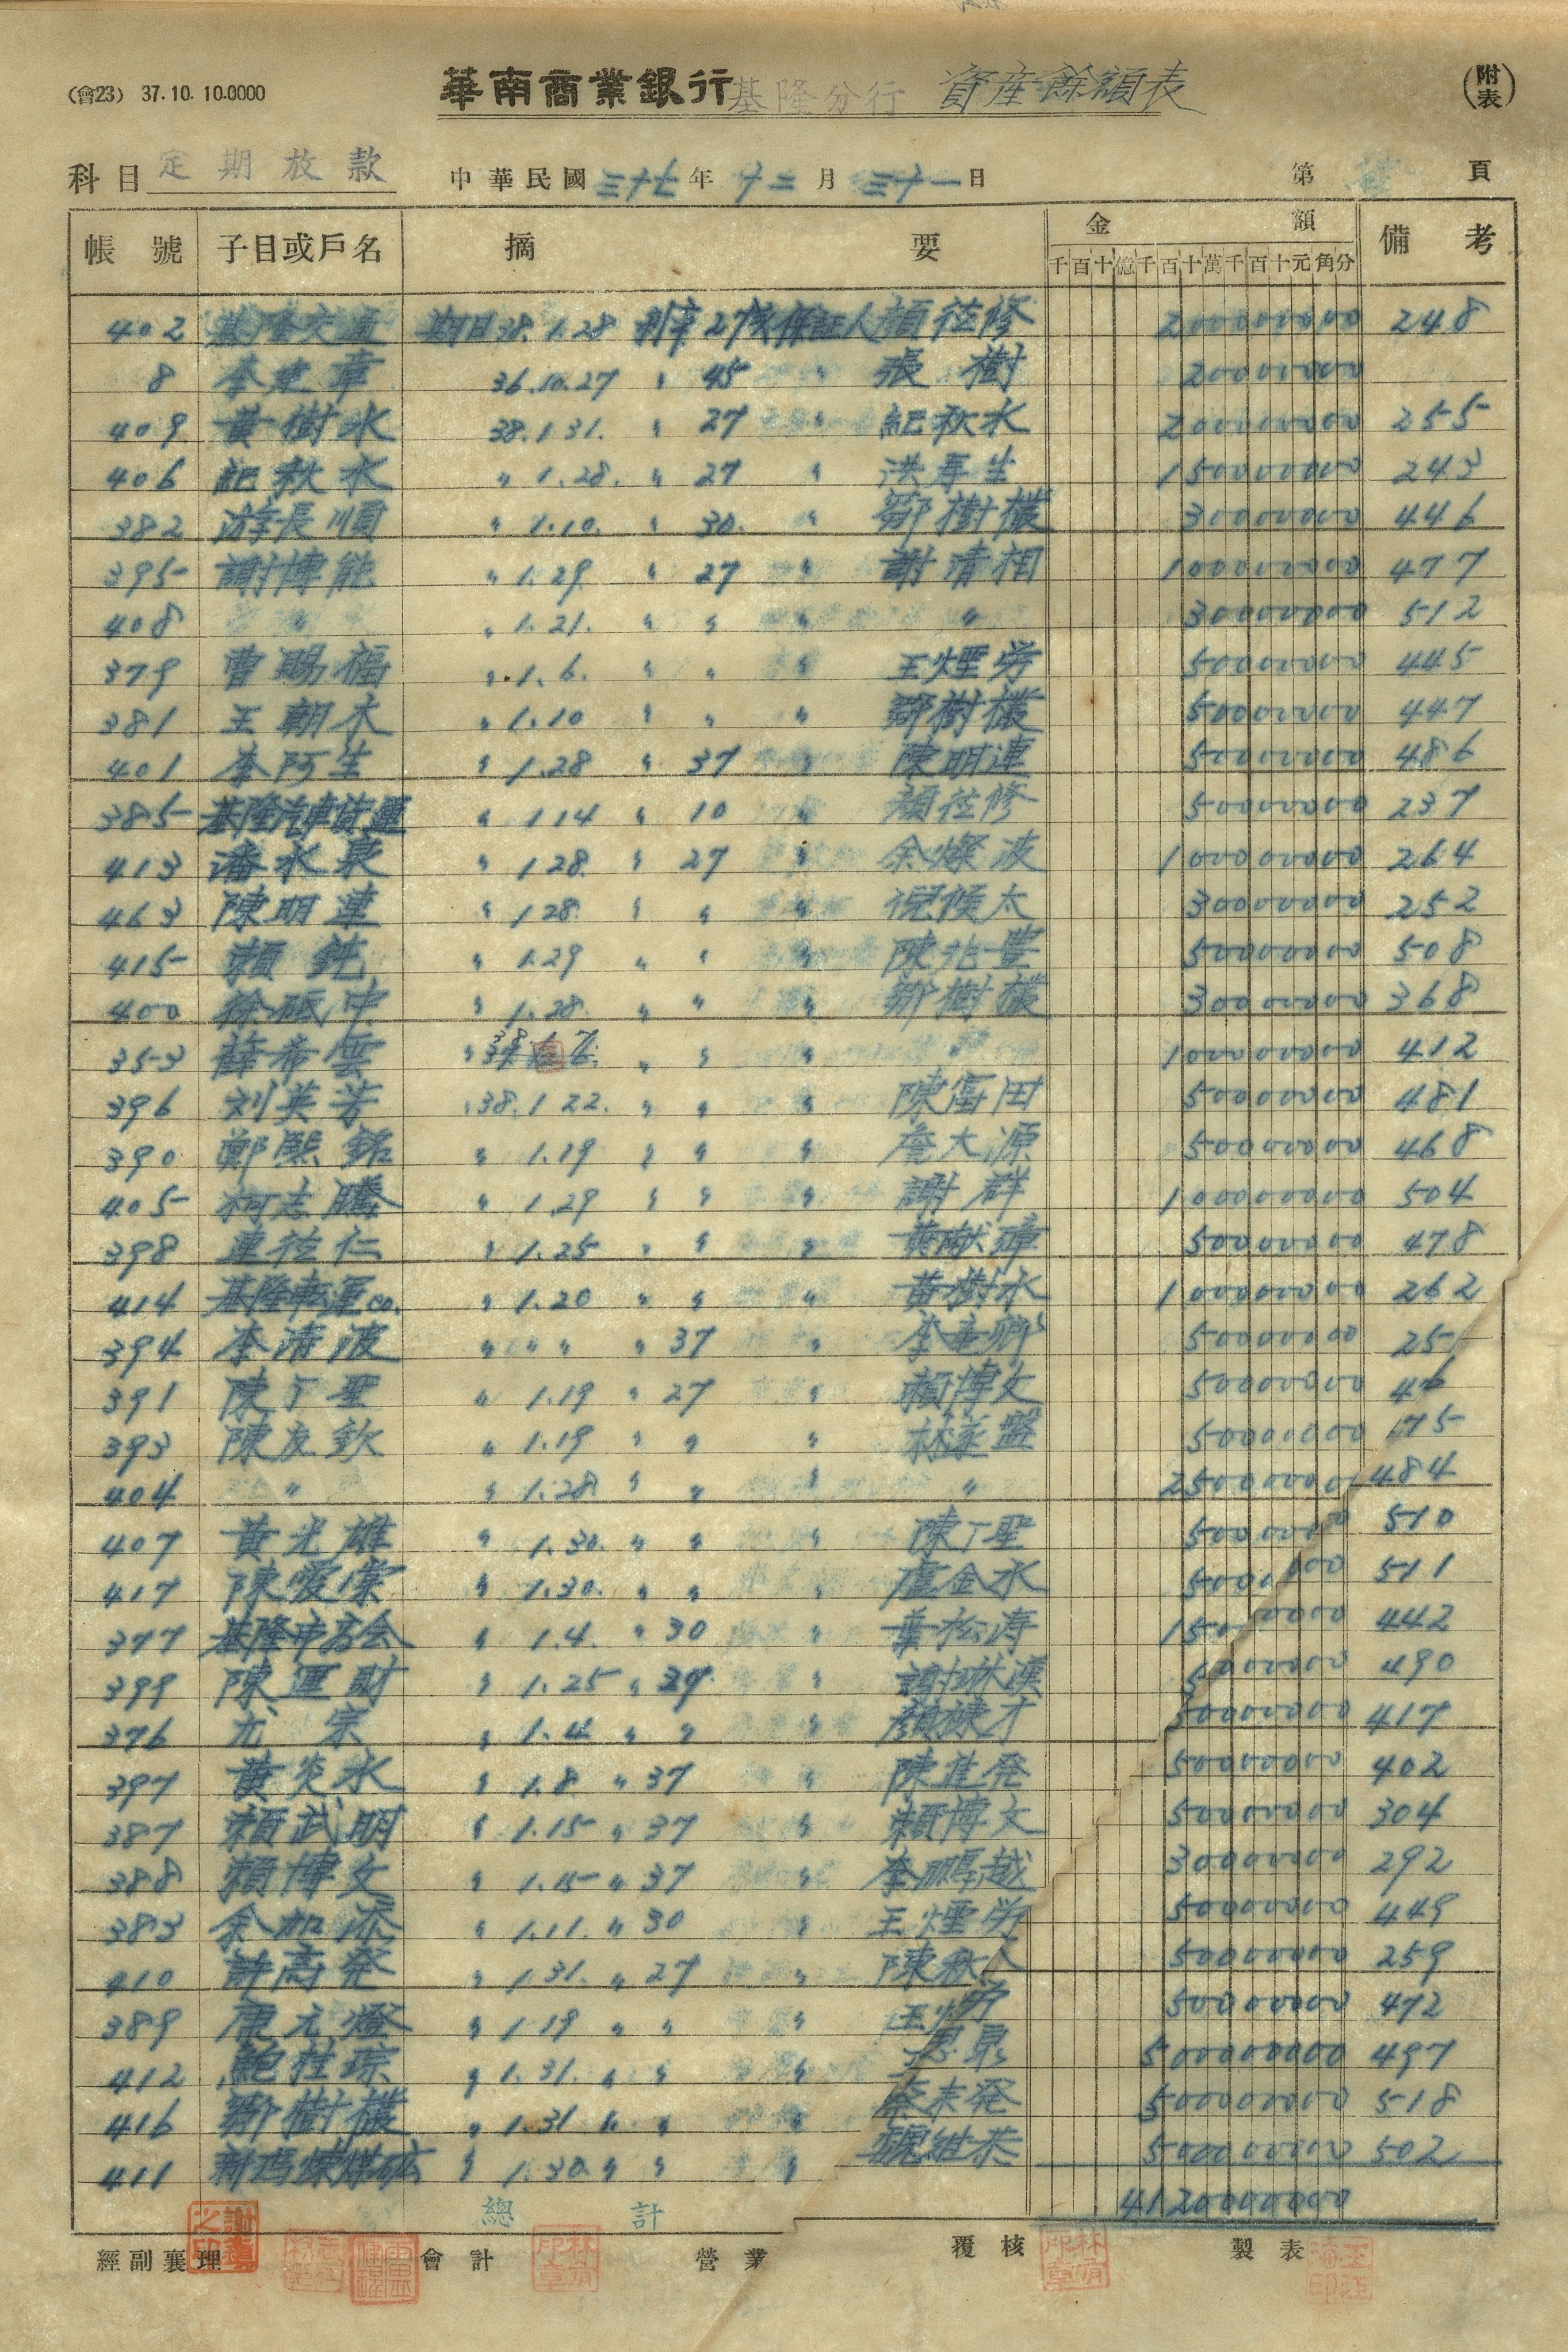 (會23) 37.10.10.0000 華南商業銀行 基隆分行 資産餘額表 (附表)
科目 定期放款 中華民國 三十七 年 十二 月 三十一 日 第 頁
帳號 子目或戶名 摘要 金額 備考
千百十億千百十萬千百十元角分
402 基隆交通 期日38.1.28 利率27 保証人 顏 修 2000000000 248
8 李建章 36.10.27 〃 45 〃 張樹 200000000
409 黃樹水 38.1.31. 〃 27 〃 紀秋水 2000000000 255
406 紀秋水 〃 1.28. 〃 27 〃 洪再生 1500000000 243
382 游長順 〃 1.10. 〃 30. 〃 鄒樹 300000000 446
395 謝博能 〃 1.29. 〃 27 〃 謝清相 1000000000 477
408 〃 〃 1.21. 〃 〃 〃 〃 300000000 512
379 曹賜福 〃 1.6. 〃 〃 〃 王煙 500000000 445
381 王朝木 〃 1.10 〃 〃 〃 鄒樹 500000000 447
401 李阿生 〃 1.28 〃 37 〃 陳明連 500000000 486
385 基隆汽車貨運 〃 1 14 〃 10 〃 顏 修 500000000 237
413 潘水泉 〃 1 28. 〃 27 〃 余燦波 1000000000 264
463 陳明連 〃 1 28. 〃 〃 〃 倪候太 300000000 252
415 賴鈍 〃 1.29 〃 〃 〃 陳兆豊 500000000 508
400 徐砥中 〃 1.28. 〃 〃 〃 鄒樹 300000000 368
353 薛希雲 〃 38.1.7. 〃 〃 〃 〃 1000000000 412
396 刘英芳 38.1 22. 〃 〃 〃 陳富田 500000000 481
390 鄭熙銘 〃 1.19 〃 〃 〃 大源 500000000 468
405 柯志騰 〃 1.29 〃 〃 〃 謝群 1000000000 504
398 連 仁 〃 1.25 〃 〃 〃 黃献璋 500000000 478
414 基隆転運co. 〃 1.20 〃 〃 〃 黃樹水 1000000000 262
394 李清波 〃 〃 〃 〃 37 〃 李 卿 500000000 25
391 陳丁聖 〃 1.19 〃 27 〃 賴博文 500000000 4
393 陳友欽 〃 1.19 〃 〃 〃 林 盤 500000000 75
404 〃 〃 1.28 〃 〃 〃 〃 2500000000 484
407 黃光雄 〃 1.30. 〃 〃 〃 陳丁聖 510
417 陳愛棠 〃 1.30. 〃 〃 〃 盧金水 511
377 基隆市商会 〃 1.4. 〃 30 〃 葉松涛 442
399 陳運財 〃 1.25 〃 〃 謝林漢 490
376 尤宗 〃 1.4 〃 〃 〃 顏棟才 417
397 黃炎水 〃 1.8. 〃 37 〃 陳進発 500000000 402
387 賴武明 〃 1.15 〃 37 〃 賴博文 500000000 304
388 賴博文 〃 1.15 〃 37 〃 李鵬越 300000000 292
383 余加添 〃 1.11. 〃 30 〃 王煙 500000000 449
410 許高発 〃 1 31. 〃 27 〃 陳秋 500000000 259
389 康元燈 〃 1 19 〃 〃 〃 王 500000000 472
412 鮑 琮 〃 1.31. 〃 〃 〃 恩泉 5000000000 497
416 鄒樹 〃 1.31 〃 〃 〃 未発 5000000000 518
411 新 煤矿 〃 1.30. 〃 〃 〃 魏維恭 5000000000 502
總計 41200000000
經副襄理 會計 營業 覆核 製表